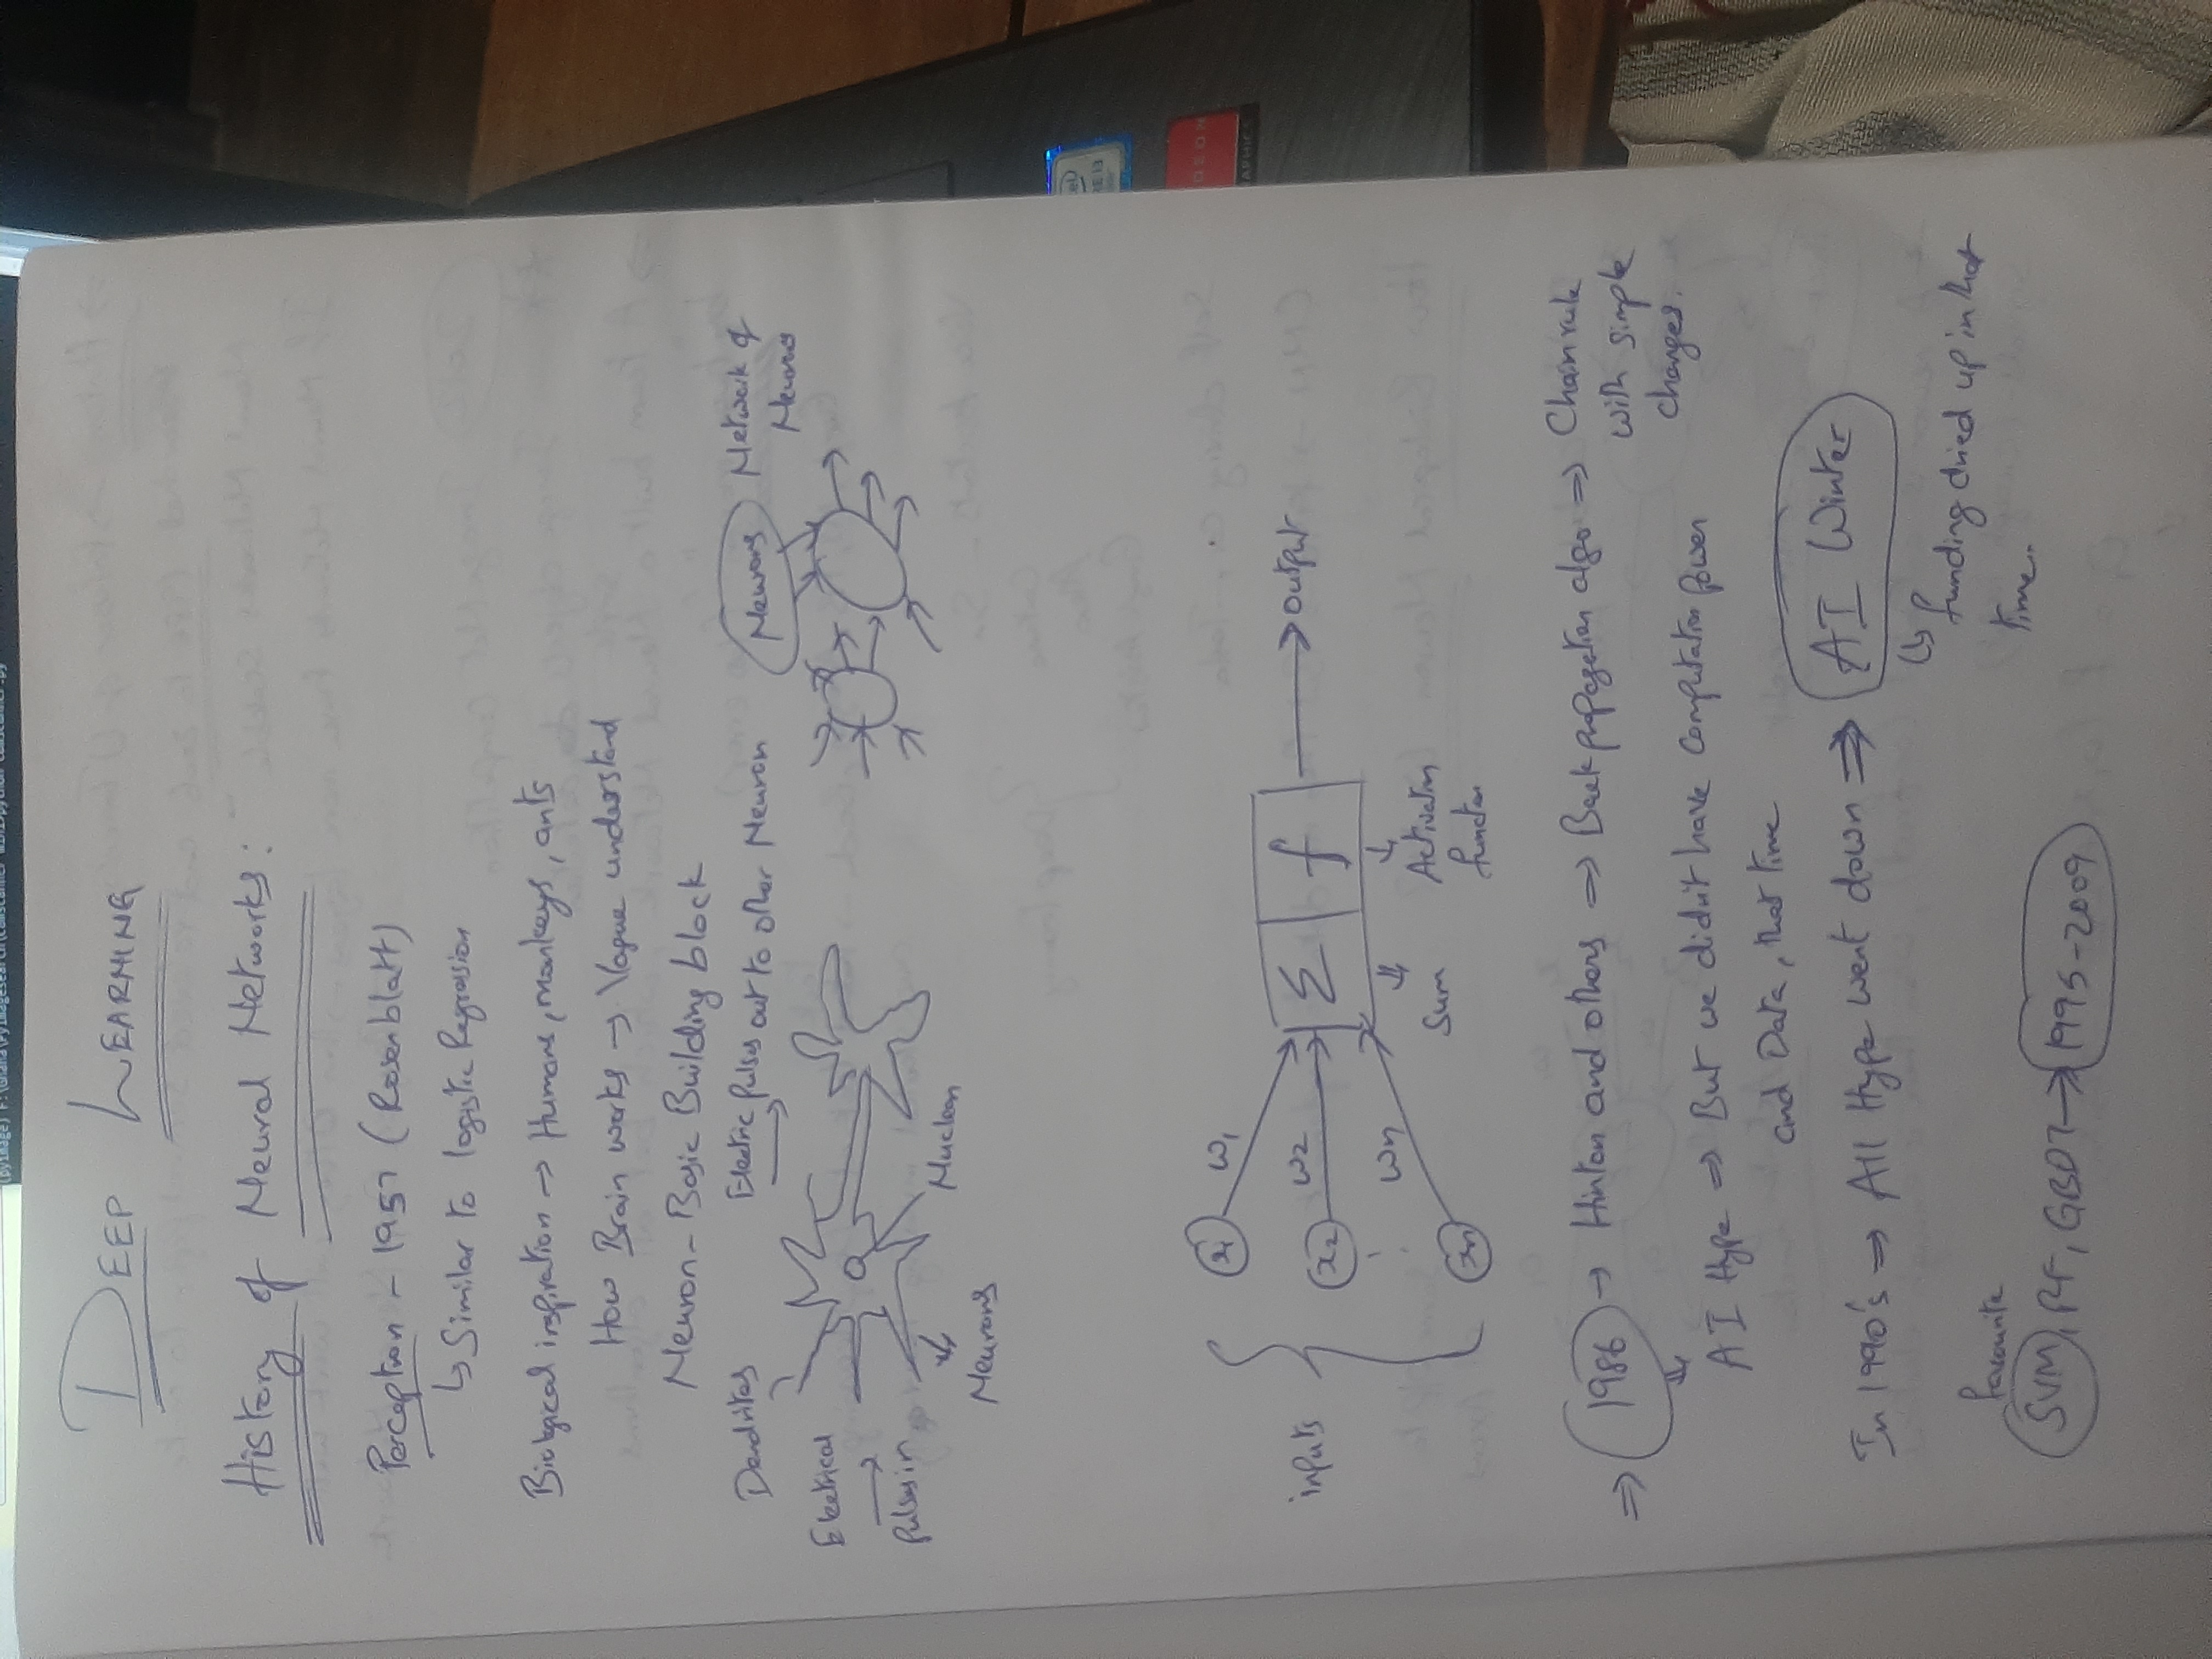 (pyimage) F:\Ghana\PyImagesearch\
DEEP LEARNING
History of Neural Networks:
Perception - 1957 (Rosenblatt)
↳ Similar to logistic Regression
Biological inspiration → Humans, monkeys, ants
How Brain works → Vague understand
Neuron - Basic Building block
Dendrites
Electric Pulses out to other Neuron
Neurons
Network of
Neurons
Electrical
Pulses in
Nuclean
Neurons
x1
w1
inputs
x2
w2
Σ
f
output
wn
xn
Sum
Activation
function
⇒ 1986 → Hinton and others ⇒ Back propagation algo ⇒ Chain rule
with simple
changes.
AI Hype ⇒ But we didn't have computation power
and Data, that time
In 1990's ⇒ All Hype went down ⇒ AI Winter
↳ funding dried up in that
time.
favourite
SVM, RF, GBDT → 1995-2009